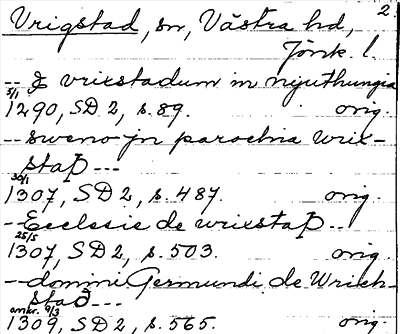 2.
Vrigstad, sn, Västra hd,
Jönk. l.
-- J vrixstadum in niguthungia
5/1
1290, SD 2, s. 89. orig.
-- sweno jn parochia Wrix-
staþ ---
30/1
1307, SD 2, s. 487. orig.
-- Ecclesie de wrixstaþ --
25/5
1307, SD 2, s. 503. orig.
-- domini Germundi de Wrick-
stað ---
omkr. 9/3
1309, SD 2, s. 565. orig.